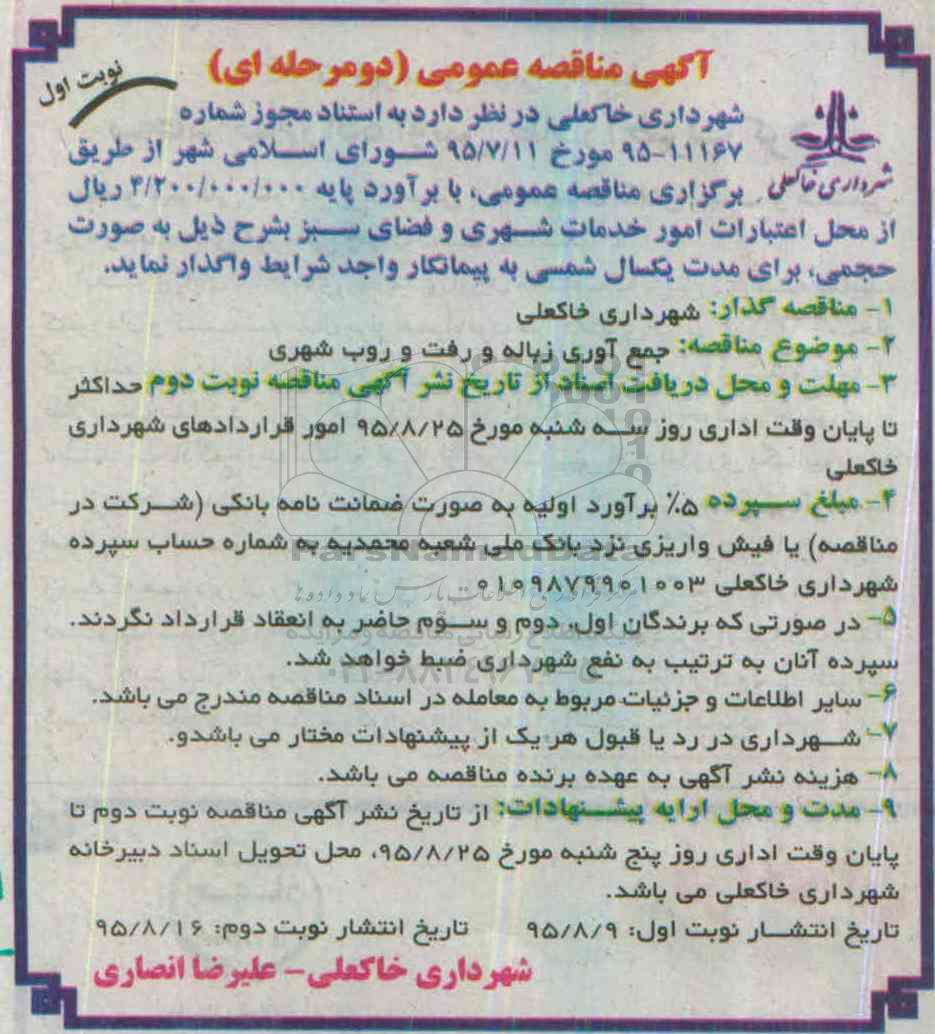 آگهی مناقصه عمومی (دومرحله ای)
نوبت اول
شهرداری خاکعلی در نظر دارد به استناد مجوز شماره
۹۵-۱۱۱۶۷ مورخ ۹۵/۷/۱۱ شورای اسلامی شهر از طریق
شهرداری خاکعلی
برگزاری مناقصه عمومی، با برآورد پایه ۴/۲۰۰/۰۰۰/۰۰۰ ریال
از محل اعتبارات امور خدمات شهری و فضای سبز بشرح ذیل به صورت
حجمی، برای مدت یکسال شمسی به پیمانکار واجد شرایط واگذار نماید.
۱- مناقصه گذار: شهرداری خاکعلی
۲- موضوع مناقصه: جمع آوری زباله و رفت و روب شهری
۳- مهلت و محل دریافت اسناد از تاریخ نشر آگهی مناقصه نوبت دوم حداکثر
تا پایان وقت اداری روز سه شنبه مورخ ۹۵/۸/۲۵ امور قراردادهای شهرداری
خاکعلی
۴- مبلغ سپرده ۵٪ برآورد اولیه به صورت ضمانت نامه بانکی (شرکت در
مناقصه) یا فیش واریزی نزد بانک ملی شعبه محمدیه به شماره حساب سپرده
ParsNamadData
شهرداری خاکعلی ۰۱۰۹۸۷۹۹۰۱۰۰۳
۵- در صورتی که برندگان اول، دوم و سوّم حاضر به انعقاد قرارداد نگردند.
سپرده آنان به ترتیب به نفع شهرداری ضبط خواهد شد.
۶- سایر اطلاعات و جزئیات مربوط به معامله در اسناد مناقصه مندرج می باشد.
۷- شهرداری در رد یا قبول هر یک از پیشنهادات مختار می باشدو.
۸- هزینه نشر آگهی به عهده برنده مناقصه می باشد.
۹- مدت و محل ارایه پیشنهادات: از تاریخ نشر آگهی مناقصه نوبت دوم تا
پایان وقت اداری روز پنج شنبه مورخ ۹۵/۸/۲۵، محل تحویل اسناد دبیرخانه
شهرداری خاکعلی می باشد.
تاریخ انتشار نوبت اول: ۹۵/۸/۹ تاریخ انتشار نوبت دوم: ۹۵/۸/۱۶
شهرداری خاکعلی- علیرضا انصاری